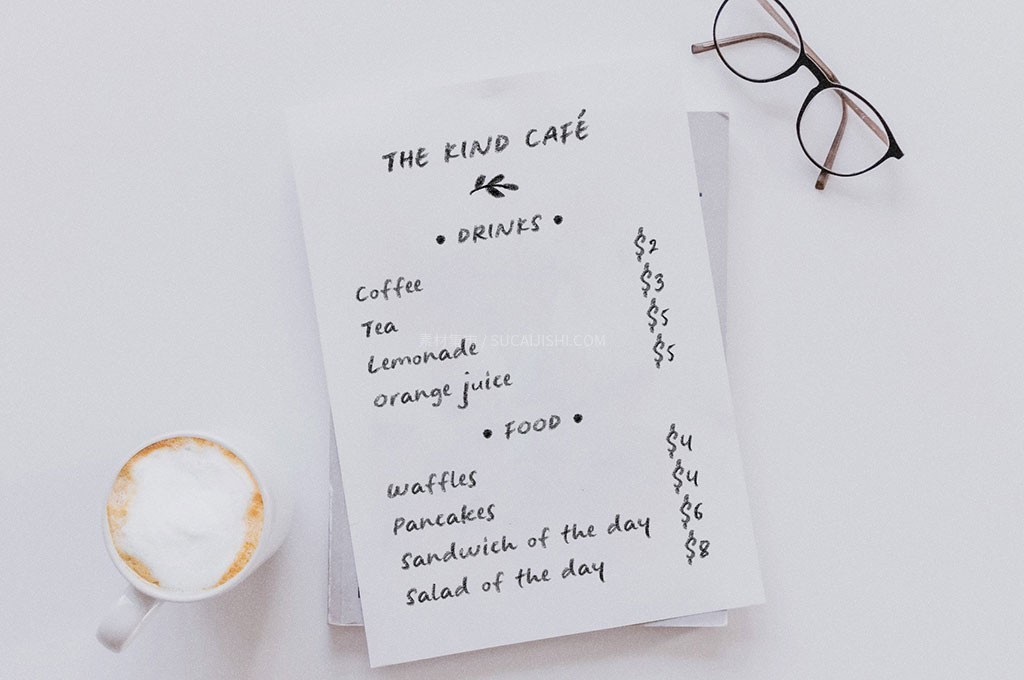 THE KIND CAFÉ
• DRINKS •
Coffee $2
Tea $3
Lemonade $5
orange juice $5
• FOOD •
waffles $4
Pancakes $4
Sandwich of the day $6
Salad of the day $8
/ SUCAIJISHI.COM